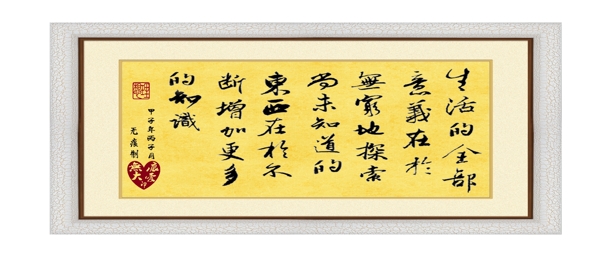 生活的全部
意義在於
無窮地探索
尚未知道的
東西在於不
断增加更多
的知識
甲子年丙子月
无痕制